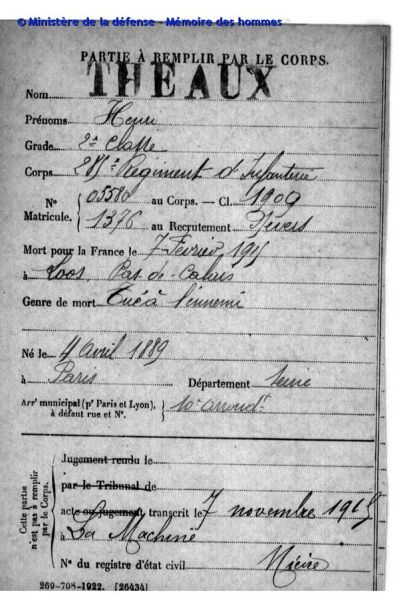 © Ministère de la défense - Mémoire des hommes
PARTIE À REMPLIR PAR LE CORPS.
Nom THEAUX
Prénoms Henri
Grade 2e Classe
Corps Régiment d'Infanterie
N° 05580 au Corps. — Cl. 1909
Matricule. 1376 au Recrutement Nevers
Mort pour la France le 7 Février 1915
à Loos Pas-de-Calais
Genre de mort Tué à l'ennemi
Né le 4 Avril 1889
à Paris Département Seine
Arrt municipal (pr Paris et Lyon), 10e arrondt
à défaut rue et N°.
Cette partie n'est pas à remplir par le Corps.
Jugement rendu le
par le Tribunal de
acte ou jugement transcrit le 7 novembre 1915
à La Machine
N° du registre d'état civil Nièvre
269-708-1922. [26434]